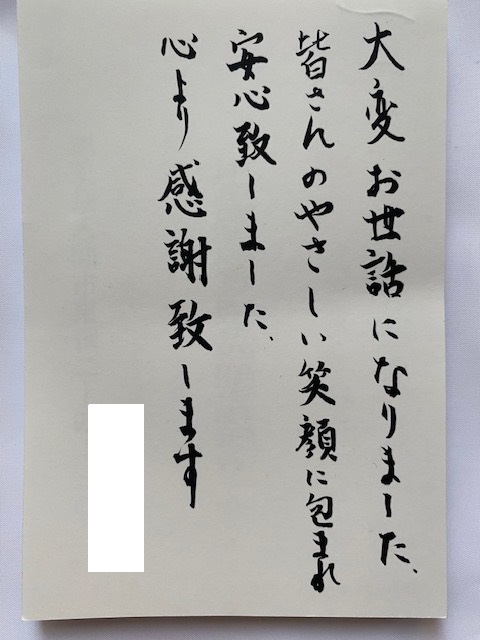 大変お世話になりました、
皆さんのやさしい笑顔に包まれ
安心致しました、
心より感謝致します